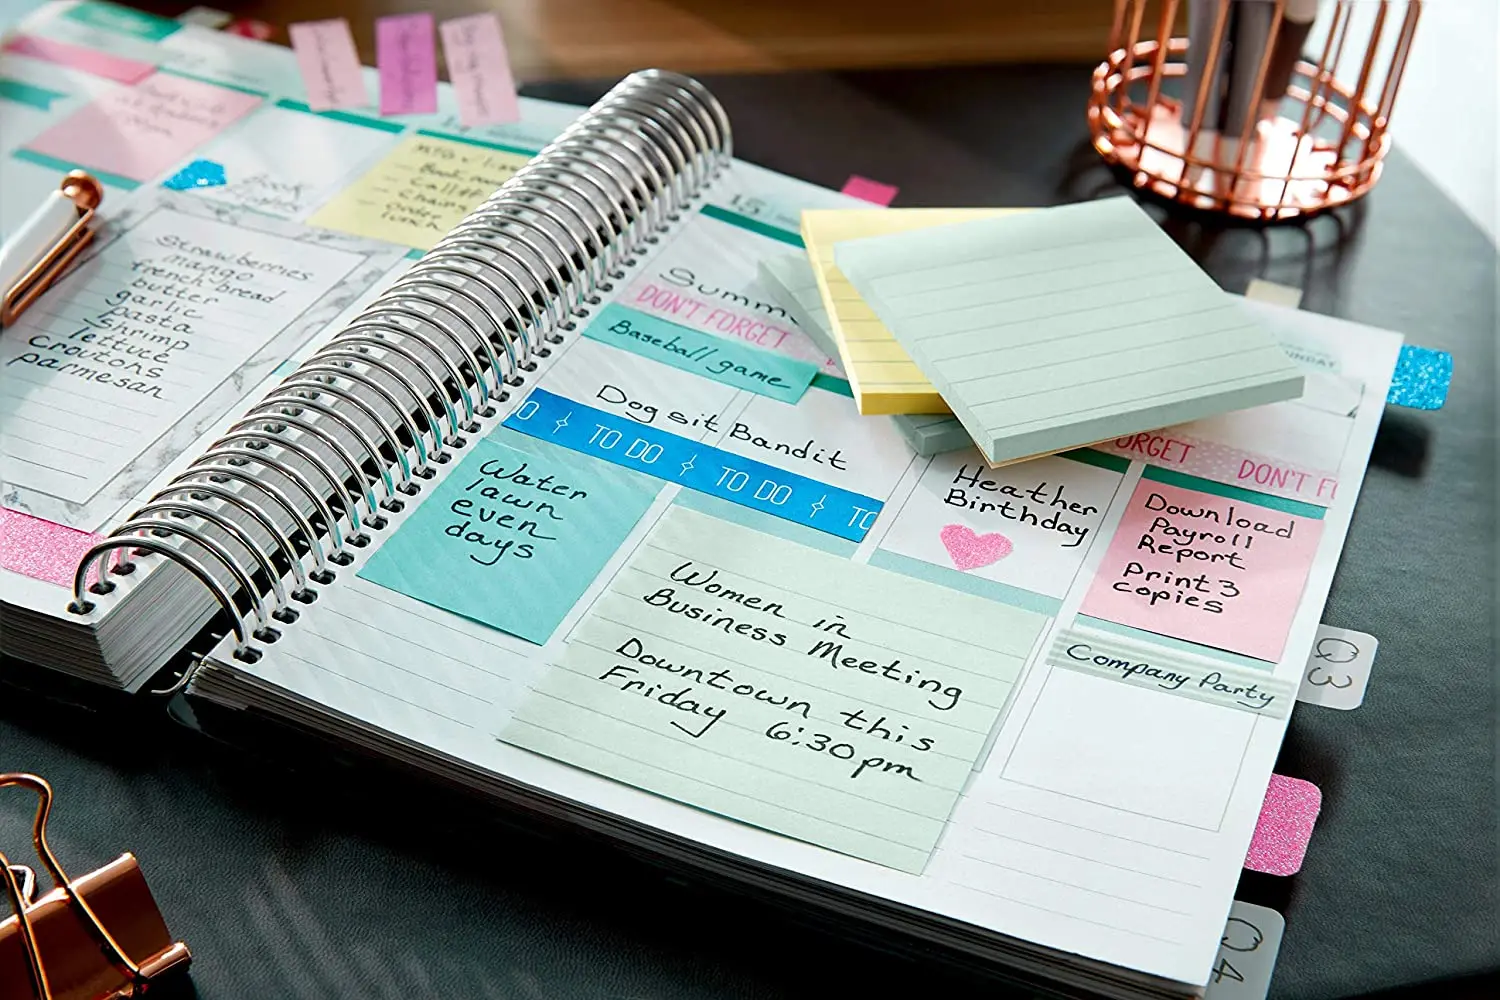 Book
flights
Call
Order
lunch
Strawberries
mango
french bread
butter
garlic
pasta
shrimp
lettuce
croutons
parmesan
15
Summ
DON'T FORGET
Baseball game
Dog sit Bandit
O TO DO TO DO TO
Water
lawn
even
days
Women in
Business Meeting
Downtown this
Friday 6:30pm
Heather
Birthday
ORGET DON'T F
Download
Payroll
Report
Print 3
copies
Company Party
UNDAY
Q3
Q4